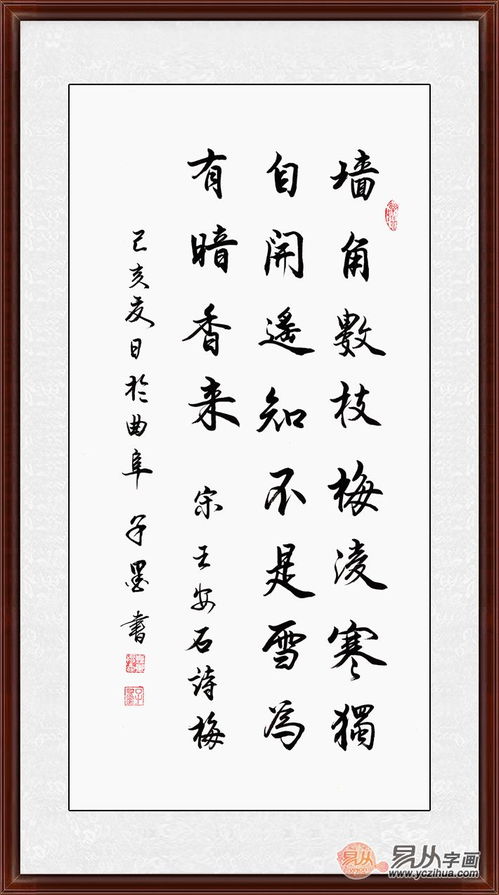 墙角數枝梅淩寒獨
自開遙知不是雪為
有暗香来 宋王安石詩梅
己亥夏日於曲阜 子墨書
易从字画
www.yczihua.com